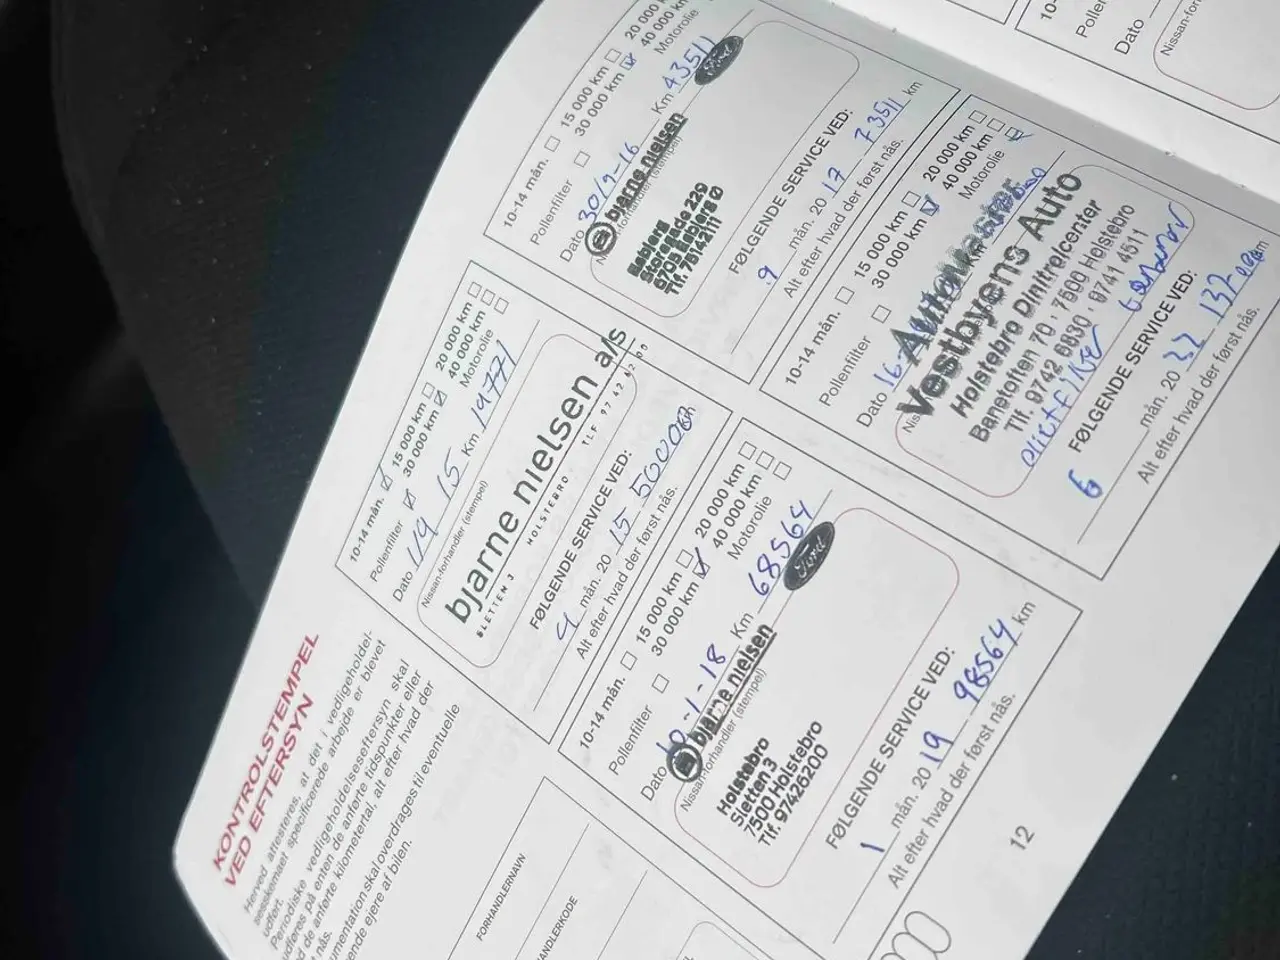 KONTROLSTEMPEL
VED EFTERSYN
Herved attesteres, at det i vedligeholdel-
sesskemaet specificerede arbejde er blevet
udført.
Periodiske vedligeholdelseseftersyn skal
udføres på enten de anførte tidspunkter eller
de anførte kilometertal, alt efter hvad der
nås.
skal overdrages til eventuelle
ende ejere af bilen.
FORHANDLERNAVN
10-14 mån. 15 000 km 20 000 km
30 000 km 40 000 km
Pollenfilter Motorolie
Dato 1/9 15 Km 19771
Nissan-forhandler (stempel)
bjarne nielsen a/s
SLETTEN 3 HOLSTEBRO TLF 97 42 62 00
FØLGENDE SERVICE VED:
9 mån. 20 15 50000 km
Alt efter hvad der først nås.
10-14 mån. 15 000 km 20 000 km
30 000 km 40 000 km
Pollenfilter Motorolie
Dato 30/9-16 Km 43511
bjarne nielsen Ford
Esbjerg
Storegade 229
6705 Esbjerg Ø
Tlf. 76142111
FØLGENDE SERVICE VED:
9 mån. 20 17 73511 km
Alt efter hvad der først nås.
10-14 mån. 15 000 km 20 000 km
30 000 km 40 000 km
Pollenfilter Motorolie
Dato 10-1-18 Km 68564
Nissan-forhandler (stempel)
bjarne nielsen Ford
Holstebro
Sletten 3
7500 Holstebro
Tlf. 97426200
FØLGENDE SERVICE VED:
1 mån. 20 19 98564 km
Alt efter hvad der først nås.
10-14 mån. 15 000 km 20 000 km
30 000 km 40 000 km
Pollenfilter Motorolie
Dato 16-
Automester
Vestbyens Auto
Holstebro Dinitrolcenter
Banetoften 70 · 7500 Holstebro
Tlf. 9742 6830 · 9741 4511
FØLGENDE SERVICE VED:
6 mån. 20 22 137.000 km
Alt efter hvad der først nås.
12
Dato
Nissan-for